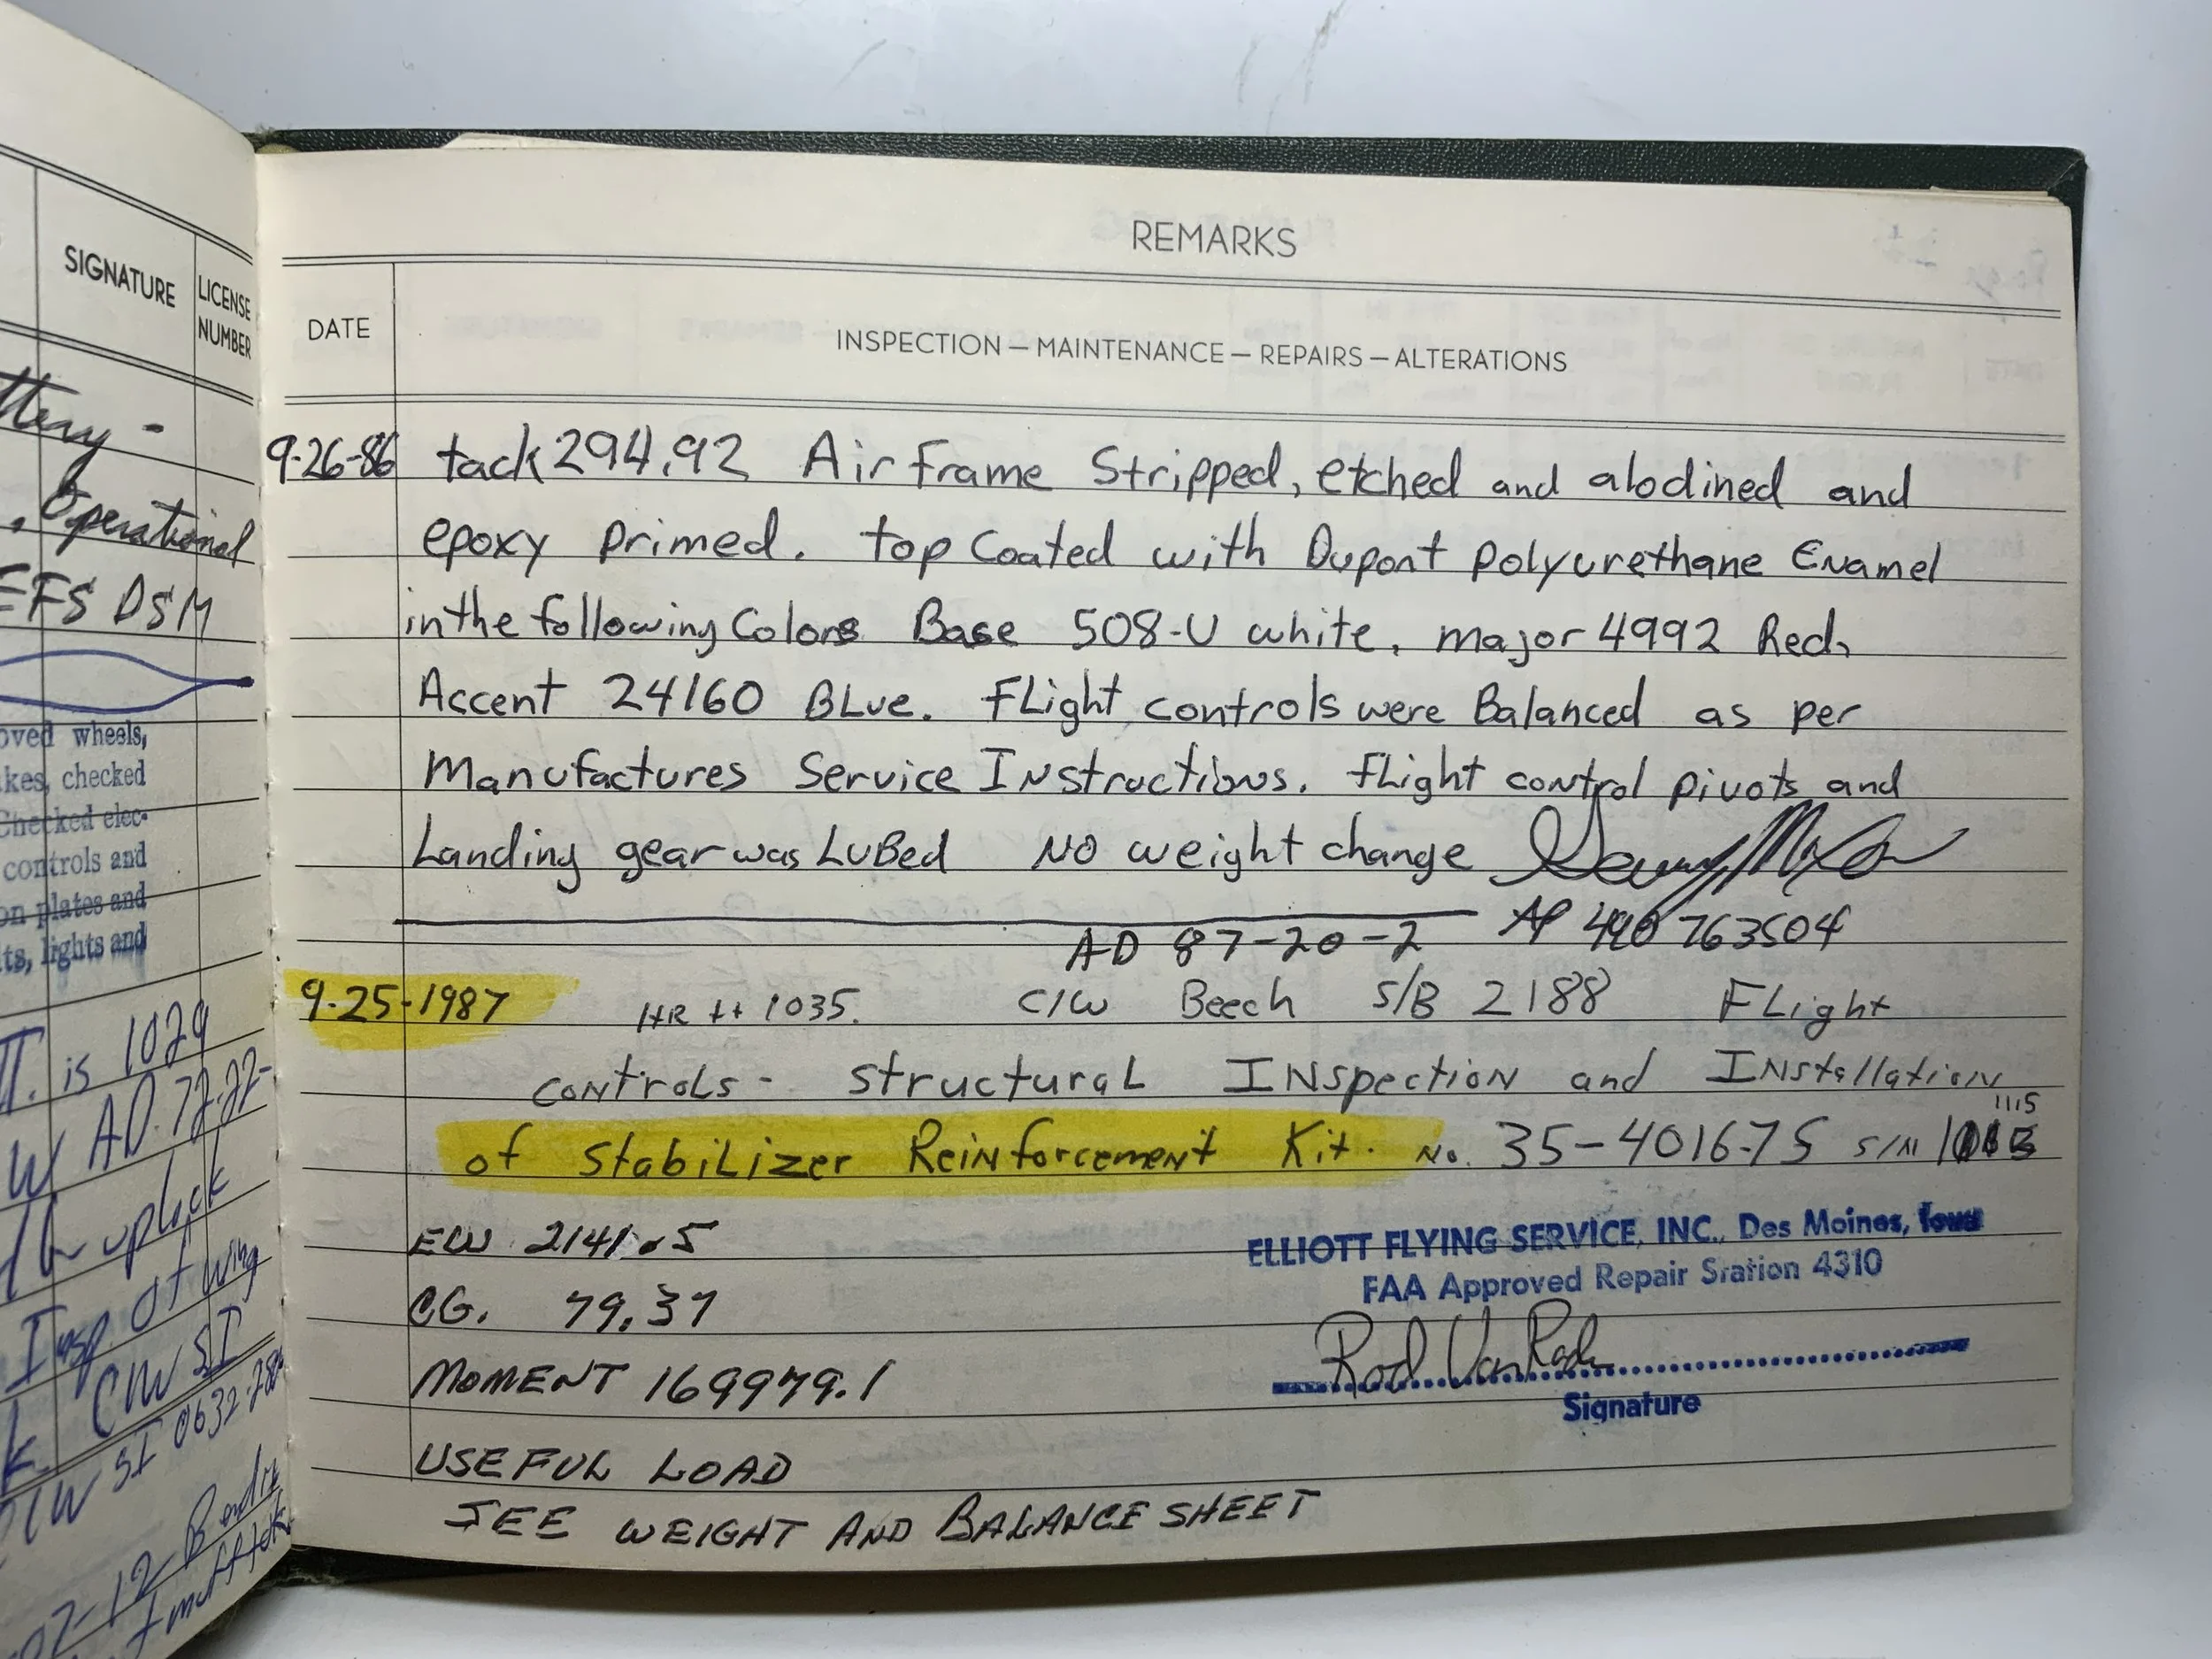 SIGNATURE
LICENSE
NUMBER
Operational
EFS DSM
wheels,
checked
Checked elec-
controls and
plates and
lights and
is 1029
AD. 72-22-
uplock
Insp. of wing
C/W SI
C/W SI 0632-
REMARKS
DATE
INSPECTION — MAINTENANCE — REPAIRS — ALTERATIONS
9-26-86 tack 294.92 Airframe Stripped, etched and alodined and
epoxy primed. top Coated with Dupont polyurethane Enamel
in the following Colors Base 508-U white, major 4992 Red,
Accent 24160 BLue. FLight controls were Balanced as per
Manufactures Service INstructions. fLight control pivots and
Landing gear was LuBed No weight change
AP 490763504
AD 87-20-2
9-25-1987 HR tt 1035. C/W Beech S/B 2188 FLight
CONTroLs - structuraL INspection and INstallation
1115
of StabiLizer ReiNforcemeNt Kit. No. 35-4016-7S S/N
EW 2141.5
CG. 79.37
MOMENT 169979.1
USEFUL LOAD
SEE WEIGHT AND BALANCE SHEET
ELLIOTT FLYING SERVICE, INC., Des Moines, Iowa
FAA Approved Repair Station 4310
Rod
Signature